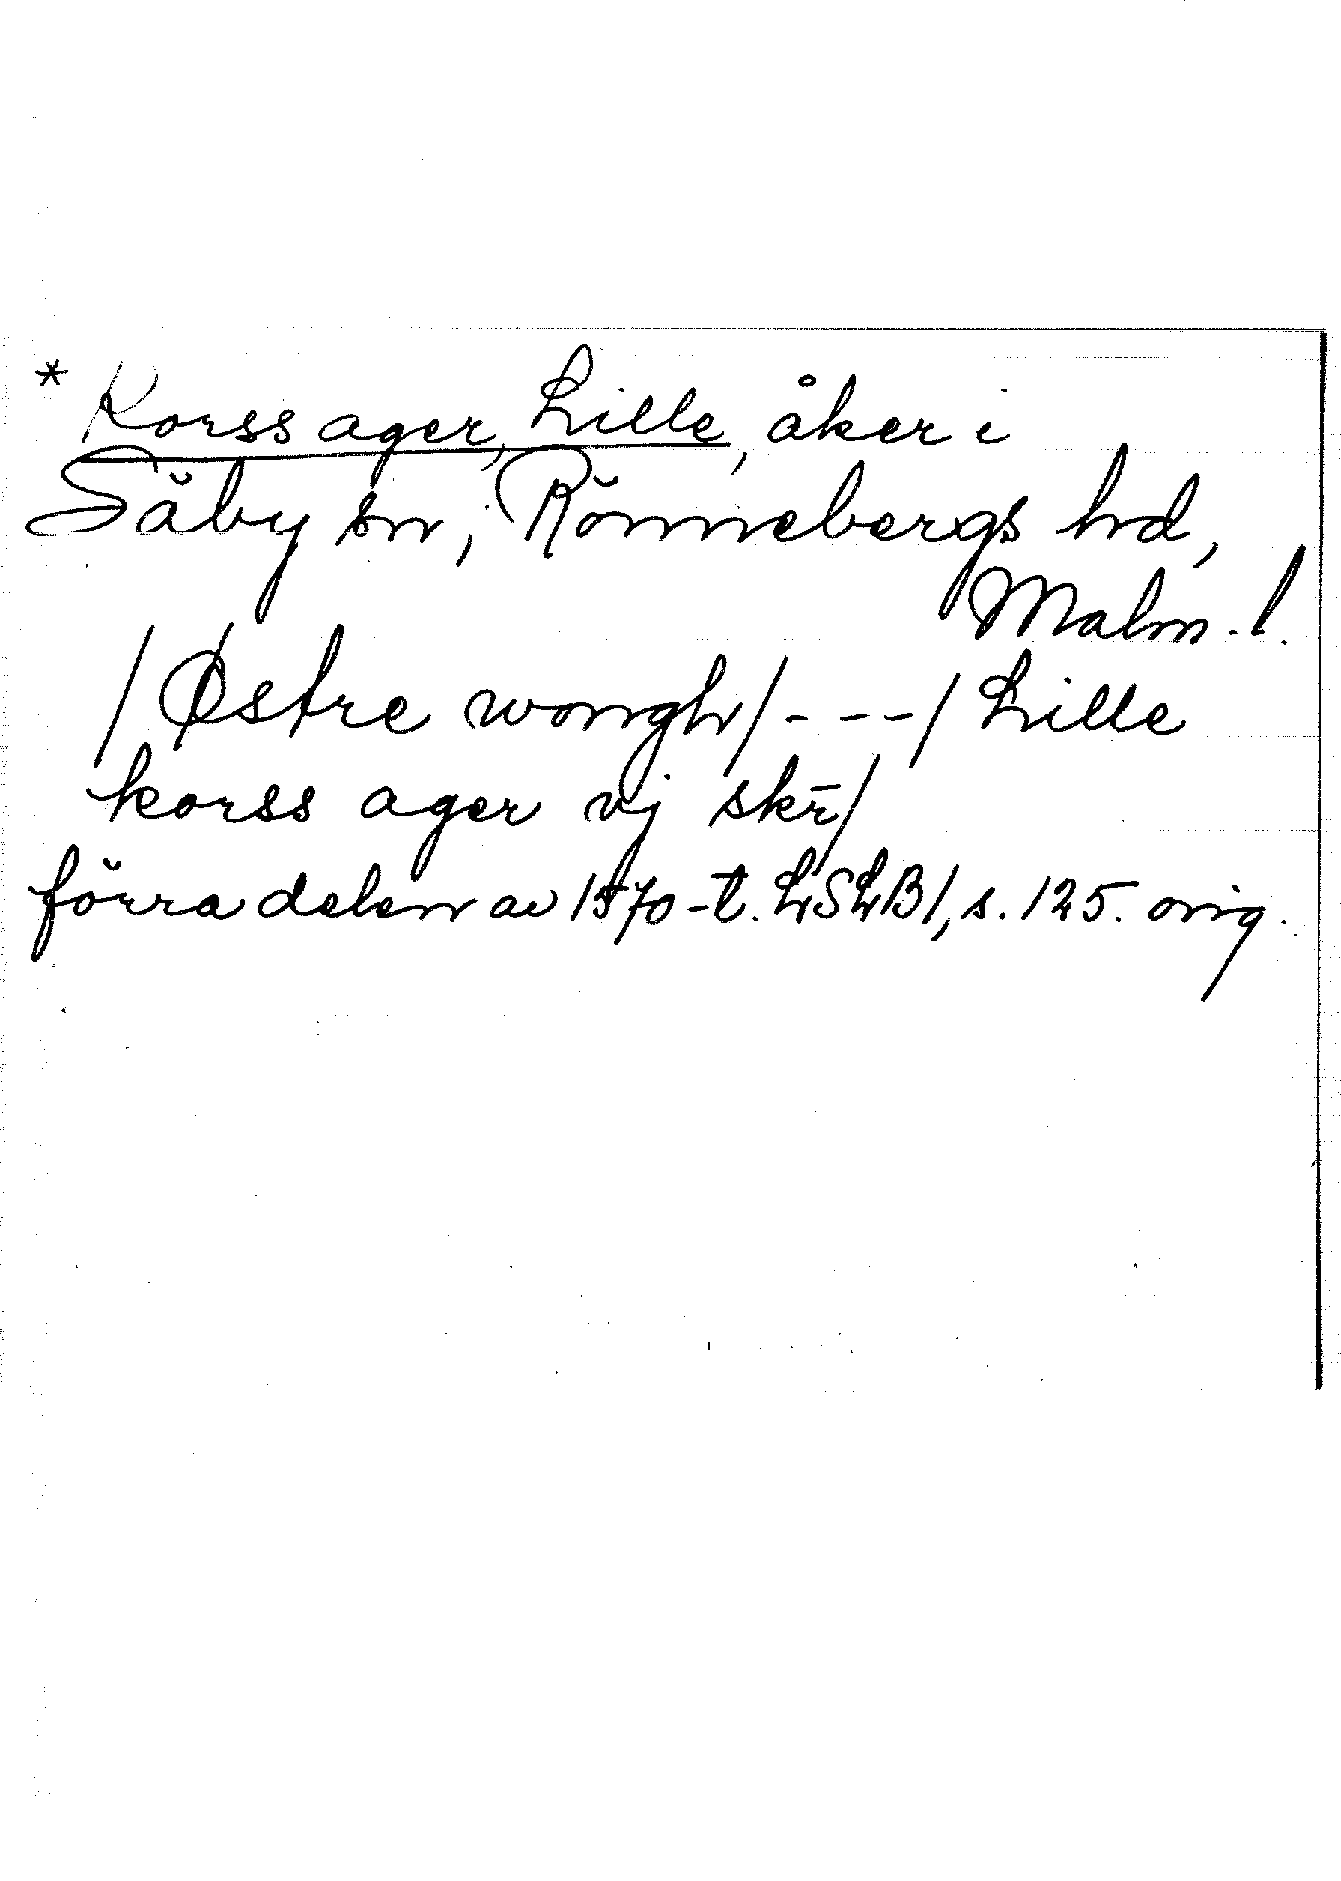 * Korss ager, Lille, åker i
Säby sn, Rönnebergs hd,
Malm. l.
/Østre wongh/---/Lille
korss ager vj skr̄/
förra delen av 1570-t. LSLB1, s. 125. orig.